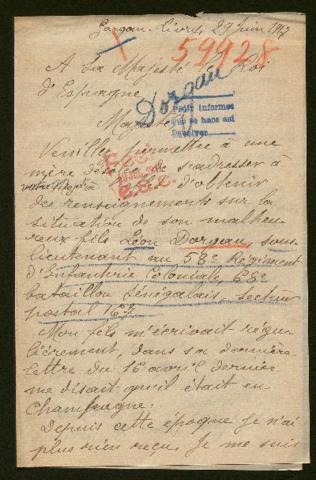 Gargan-Livry 29 Juin 1917
59928
A Sa Majesté le Roi
d'Espagne
Dorgau
Pedir informes
Majesté
Veuillez permettre à une
mère désolée de s'adresser à
votre Majesté afin d'obtenir
des renseignements sur la
situation de son malheu-
reux fils Léon Dorgeau, sous-
lieutenant au 58e Régiment
d'Infanterie Coloniale, 68e
bataillon Sénégalais, secteur
postal 162.
Mon fils m'écrivait régu-
lièrement, dans sa dernière
lettre du 16 avril dernier
me disait qu'il était en
Champagne.
Depuis cette époque je n'ai
plus rien reçu. Je me suis